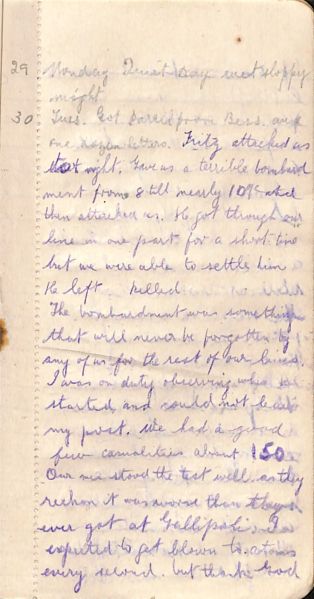 29 Monday Quiet day wet sloppy
night
30 Tues. Got parcel from Bess. and
one dozen letters. Fritz attacked us
at night. Gave us a terrible bombard
ment from 8 till nearly 10 and
then attacked us. He got through our
line in one part for a short time
but we were able to settle him
He left killed
The bombardment was something
that will never be forgotten by
any of us for the rest of our lives.
I was on duty observing when it
started and could not leave
my post. We had a good
few casualties about 150
Our men stood the test well as they
reckon it was worse than they
ever got at Gallipoli I
expected to get blown to atoms
every second. but thanks God